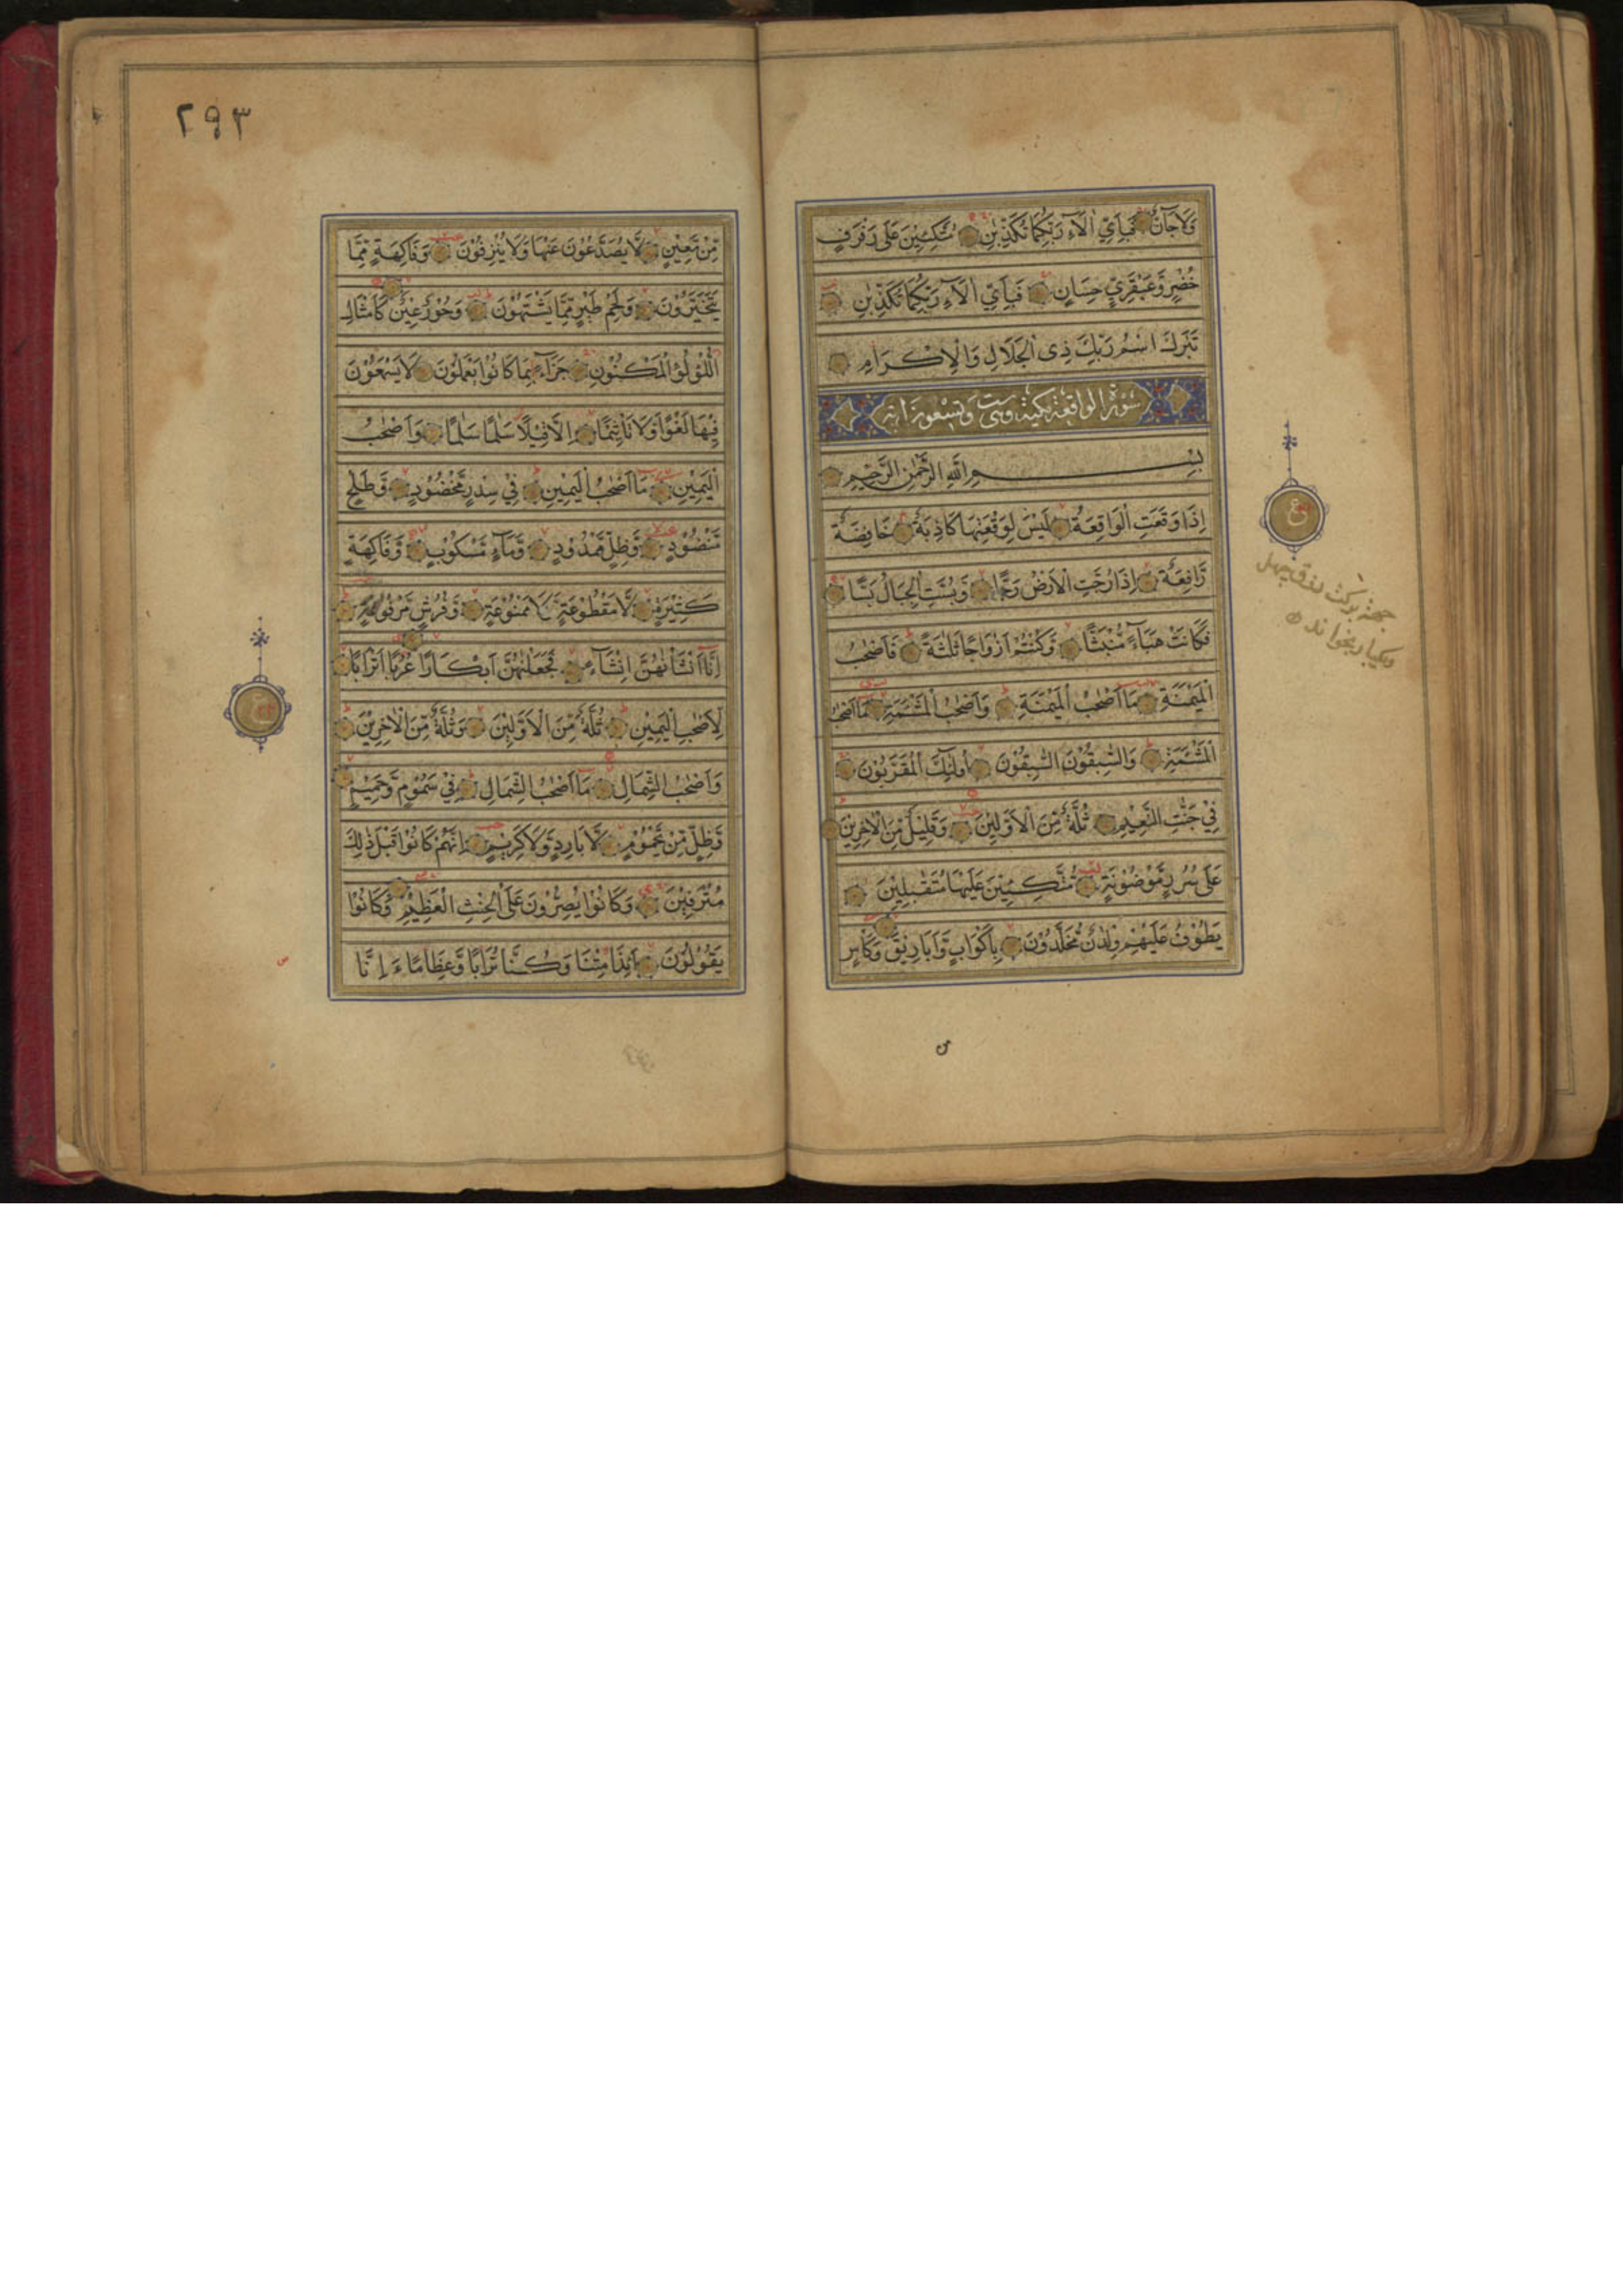 وَلَا جَآنٌّ فَبِاَيِّ اٰلَآءِ رَبِّكُمَا تُكَذِّبٰنِ مُتَّكِئِيْنَ عَلٰى رَفْرَفٍ
خُضْرٍ وَّعَبْقَرِيٍّ حِسَانٍ فَبِاَيِّ اٰلَآءِ رَبِّكُمَا تُكَذِّبٰنِ
تَبٰرَكَ اسْمُ رَبِّكَ ذِى الْجَلَالِ وَالْاِكْرَامِ
سورة الواقعة مكية وهى ست وتسعون اية
بِسْمِ اللّٰهِ الرَّحْمٰنِ الرَّحِيْمِ
اِذَا وَقَعَتِ الْوَاقِعَةُ لَيْسَ لِوَقْعَتِهَا كَاذِبَةٌ خَافِضَةٌ
رَّافِعَةٌ اِذَا رُجَّتِ الْاَرْضُ رَجًّا وَّبُسَّتِ الْجِبَالُ بَسًّا
فَكَانَتْ هَبَآءً مُّنْبَثًّا وَّكُنْتُمْ اَزْوَاجًا ثَلٰثَةً فَاَصْحٰبُ
الْمَيْمَنَةِ مَا اَصْحٰبُ الْمَيْمَنَةِ وَاَصْحٰبُ الْمَشْئَمَةِ مَا اَصْحٰبُ
الْمَشْئَمَةِ وَالسّٰبِقُوْنَ السّٰبِقُوْنَ اُولٰئِكَ الْمُقَرَّبُوْنَ
فِيْ جَنّٰتِ النَّعِيْمِ ثُلَّةٌ مِّنَ الْاَوَّلِيْنَ وَقَلِيْلٌ مِّنَ الْاٰخِرِيْنَ
عَلٰى سُرُرٍ مَّوْضُوْنَةٍ مُّتَّكِئِيْنَ عَلَيْهَا مُتَقٰبِلِيْنَ
يَطُوْفُ عَلَيْهِمْ وِلْدَانٌ مُّخَلَّدُوْنَ بِاَكْوَابٍ وَّاَبَارِيْقَ وَكَاْسٍ
ع
وبكبار بخواند
٢٩٣
مِّنْ مَّعِيْنٍ لَّا يُصَدَّعُوْنَ عَنْهَا وَلَا يُنْزِفُوْنَ وَفَاكِهَةٍ مِّمَّا
يَتَخَيَّرُوْنَ وَلَحْمِ طَيْرٍ مِّمَّا يَشْتَهُوْنَ وَحُوْرٌ عِيْنٌ كَاَمْثَالِ
اللُّؤْلُؤِ الْمَكْنُوْنِ جَزَآءً بِمَا كَانُوْا يَعْمَلُوْنَ لَا يَسْمَعُوْنَ
فِيْهَا لَغْوًا وَّلَا تَاْثِيْمًا اِلَّا قِيْلًا سَلٰمًا سَلٰمًا وَاَصْحٰبُ
الْيَمِيْنِ مَا اَصْحٰبُ الْيَمِيْنِ فِيْ سِدْرٍ مَّخْضُوْدٍ وَّطَلْحٍ
مَّنْضُوْدٍ وَّظِلٍّ مَّمْدُوْدٍ وَّمَآءٍ مَّسْكُوْبٍ وَّفَاكِهَةٍ
كَثِيْرَةٍ لَّا مَقْطُوْعَةٍ وَّلَا مَمْنُوْعَةٍ وَّفُرُشٍ مَّرْفُوْعَةٍ
اِنَّا اَنْشَاْنٰهُنَّ اِنْشَآءً فَجَعَلْنٰهُنَّ اَبْكَارًا عُرُبًا اَتْرَابًا
لِّاَصْحٰبِ الْيَمِيْنِ ثُلَّةٌ مِّنَ الْاَوَّلِيْنَ وَثُلَّةٌ مِّنَ الْاٰخِرِيْنَ
وَاَصْحٰبُ الشِّمَالِ مَا اَصْحٰبُ الشِّمَالِ فِيْ سَمُوْمٍ وَّحَمِيْمٍ
وَّظِلٍّ مِّنْ يَّحْمُوْمٍ لَّا بَارِدٍ وَّلَا كَرِيْمٍ اِنَّهُمْ كَانُوْا قَبْلَ ذٰلِكَ
مُتْرَفِيْنَ وَكَانُوْا يُصِرُّوْنَ عَلَى الْحِنْثِ الْعَظِيْمِ وَكَانُوْا
يَقُوْلُوْنَ اَئِذَا مِتْنَا وَكُنَّا تُرَابًا وَّعِظَامًا ءَاِنَّا